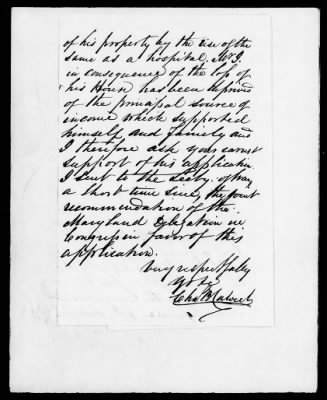 of his property by the use of the
same as a hospital. Mr J.
in consequence of the loss of
his House has been deprived
of the principal source of
income which supported
himself and family and
I therefore ask your earnest
support of his application.
I sent to the Secty. of War
a short time since, the joint
recommendation of the
Maryland Delegation in
Congress in favor of this
application.
Very respectfully
Yr St
Chs B Calvert